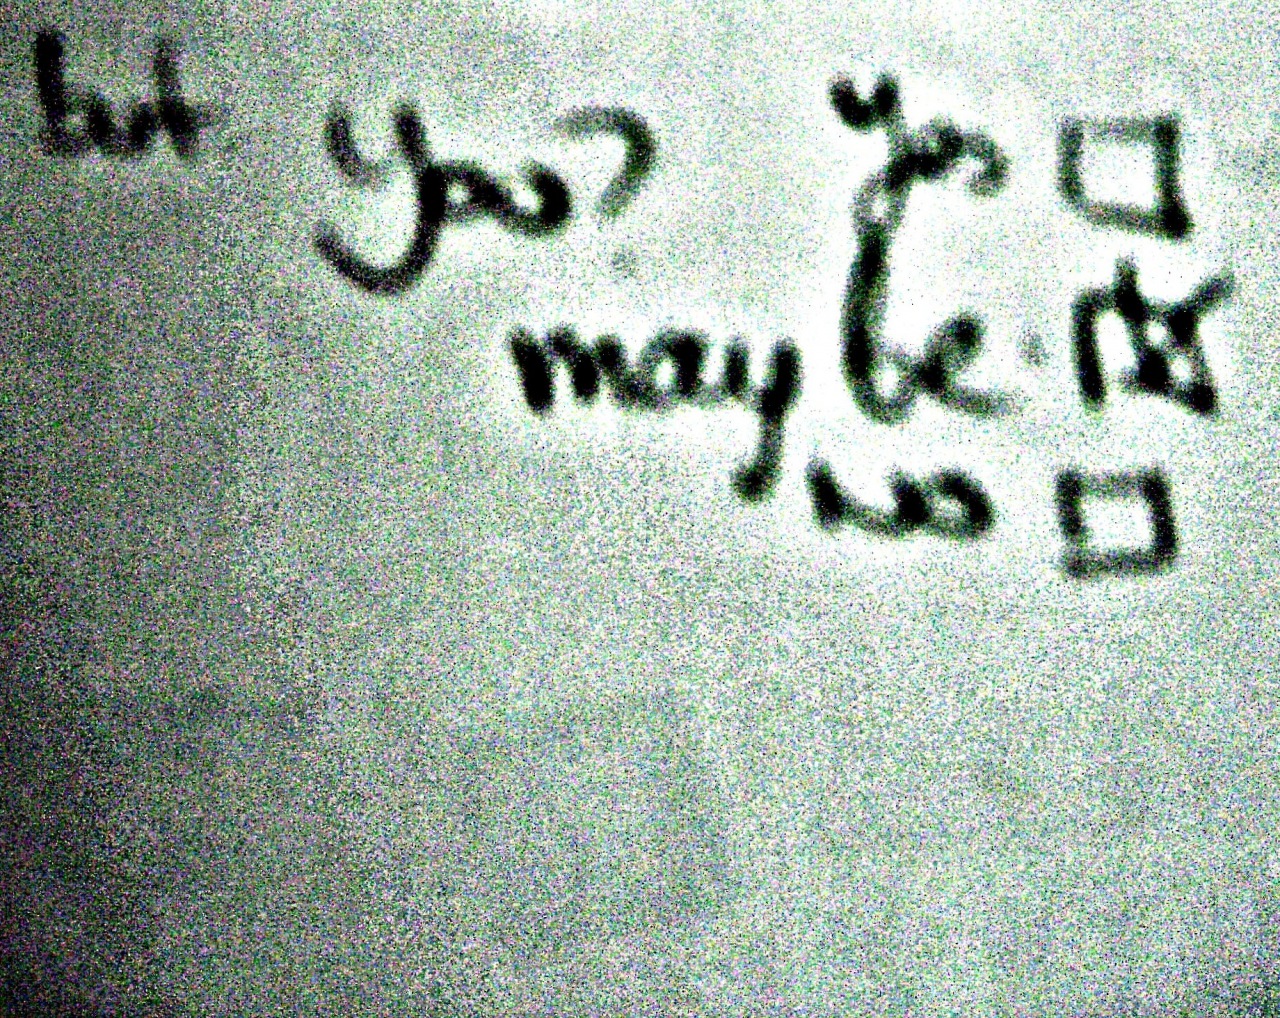 but you? yes ☐
maybe ☒
no ☐